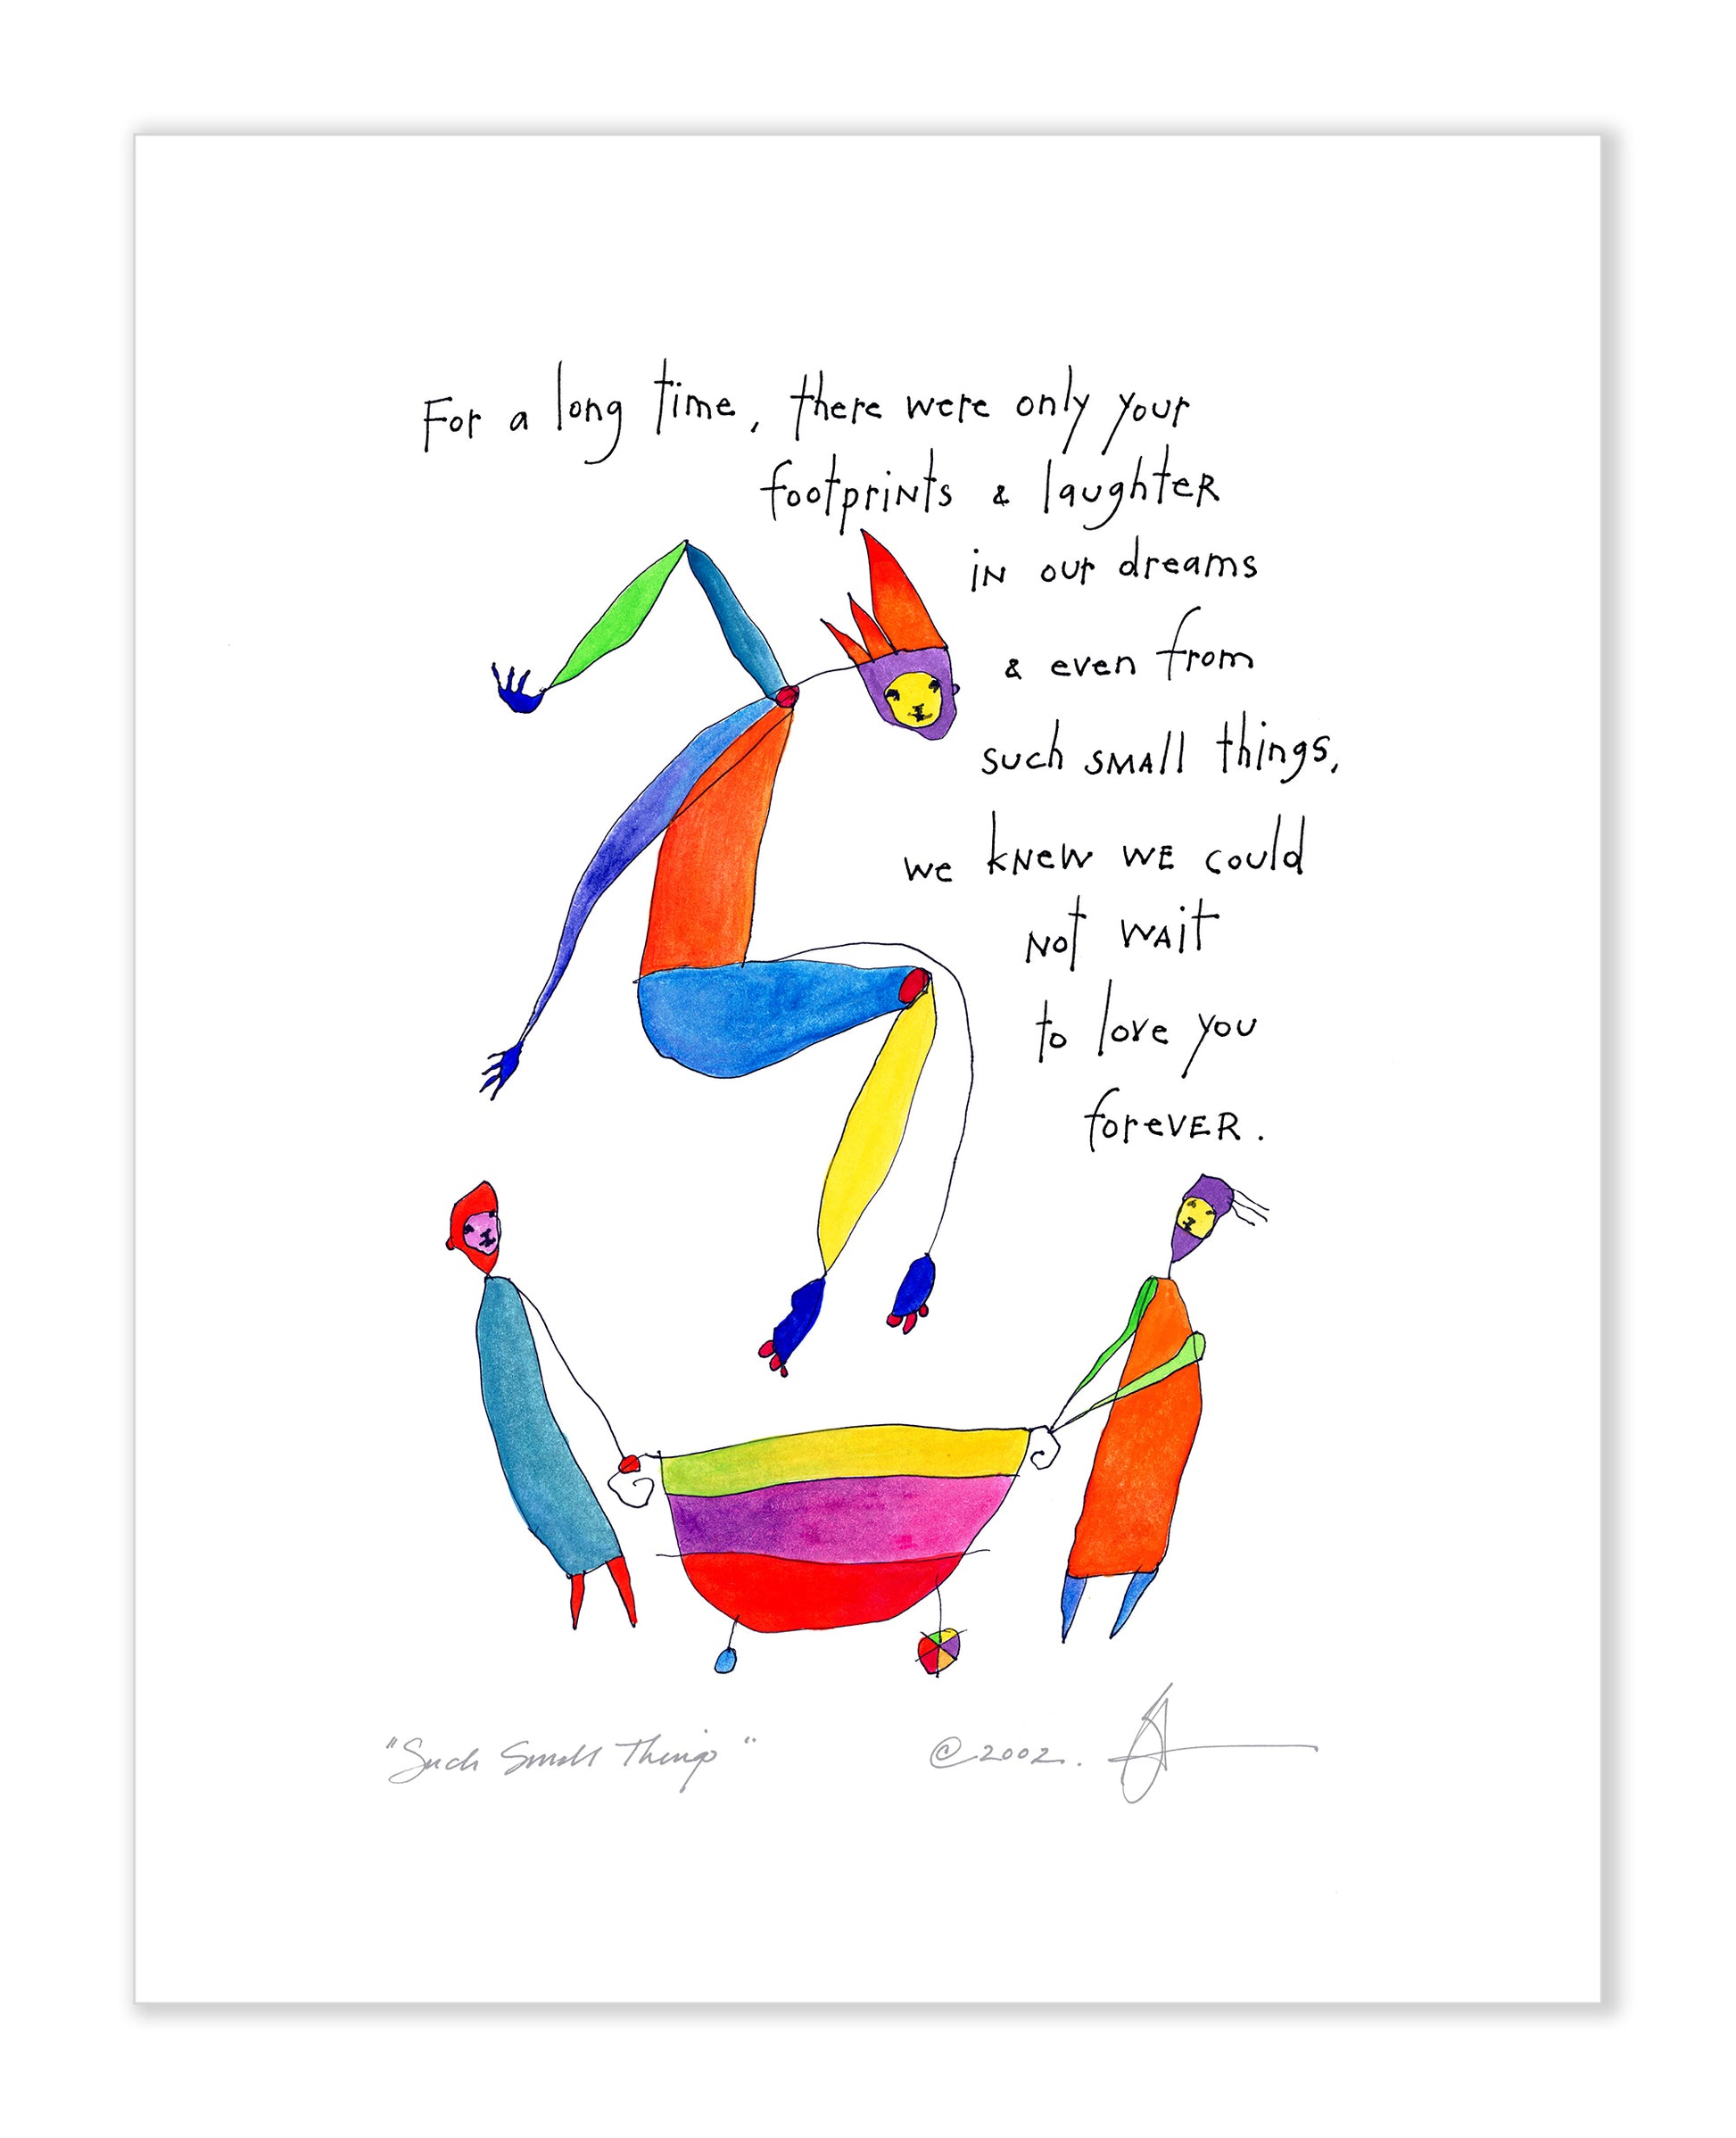 For a long time, there were only your
footprints & laughter
in our dreams
& even from
such small things,
we knew we could
not wait
to love you
forever.
"Such Small Things"
©2002.